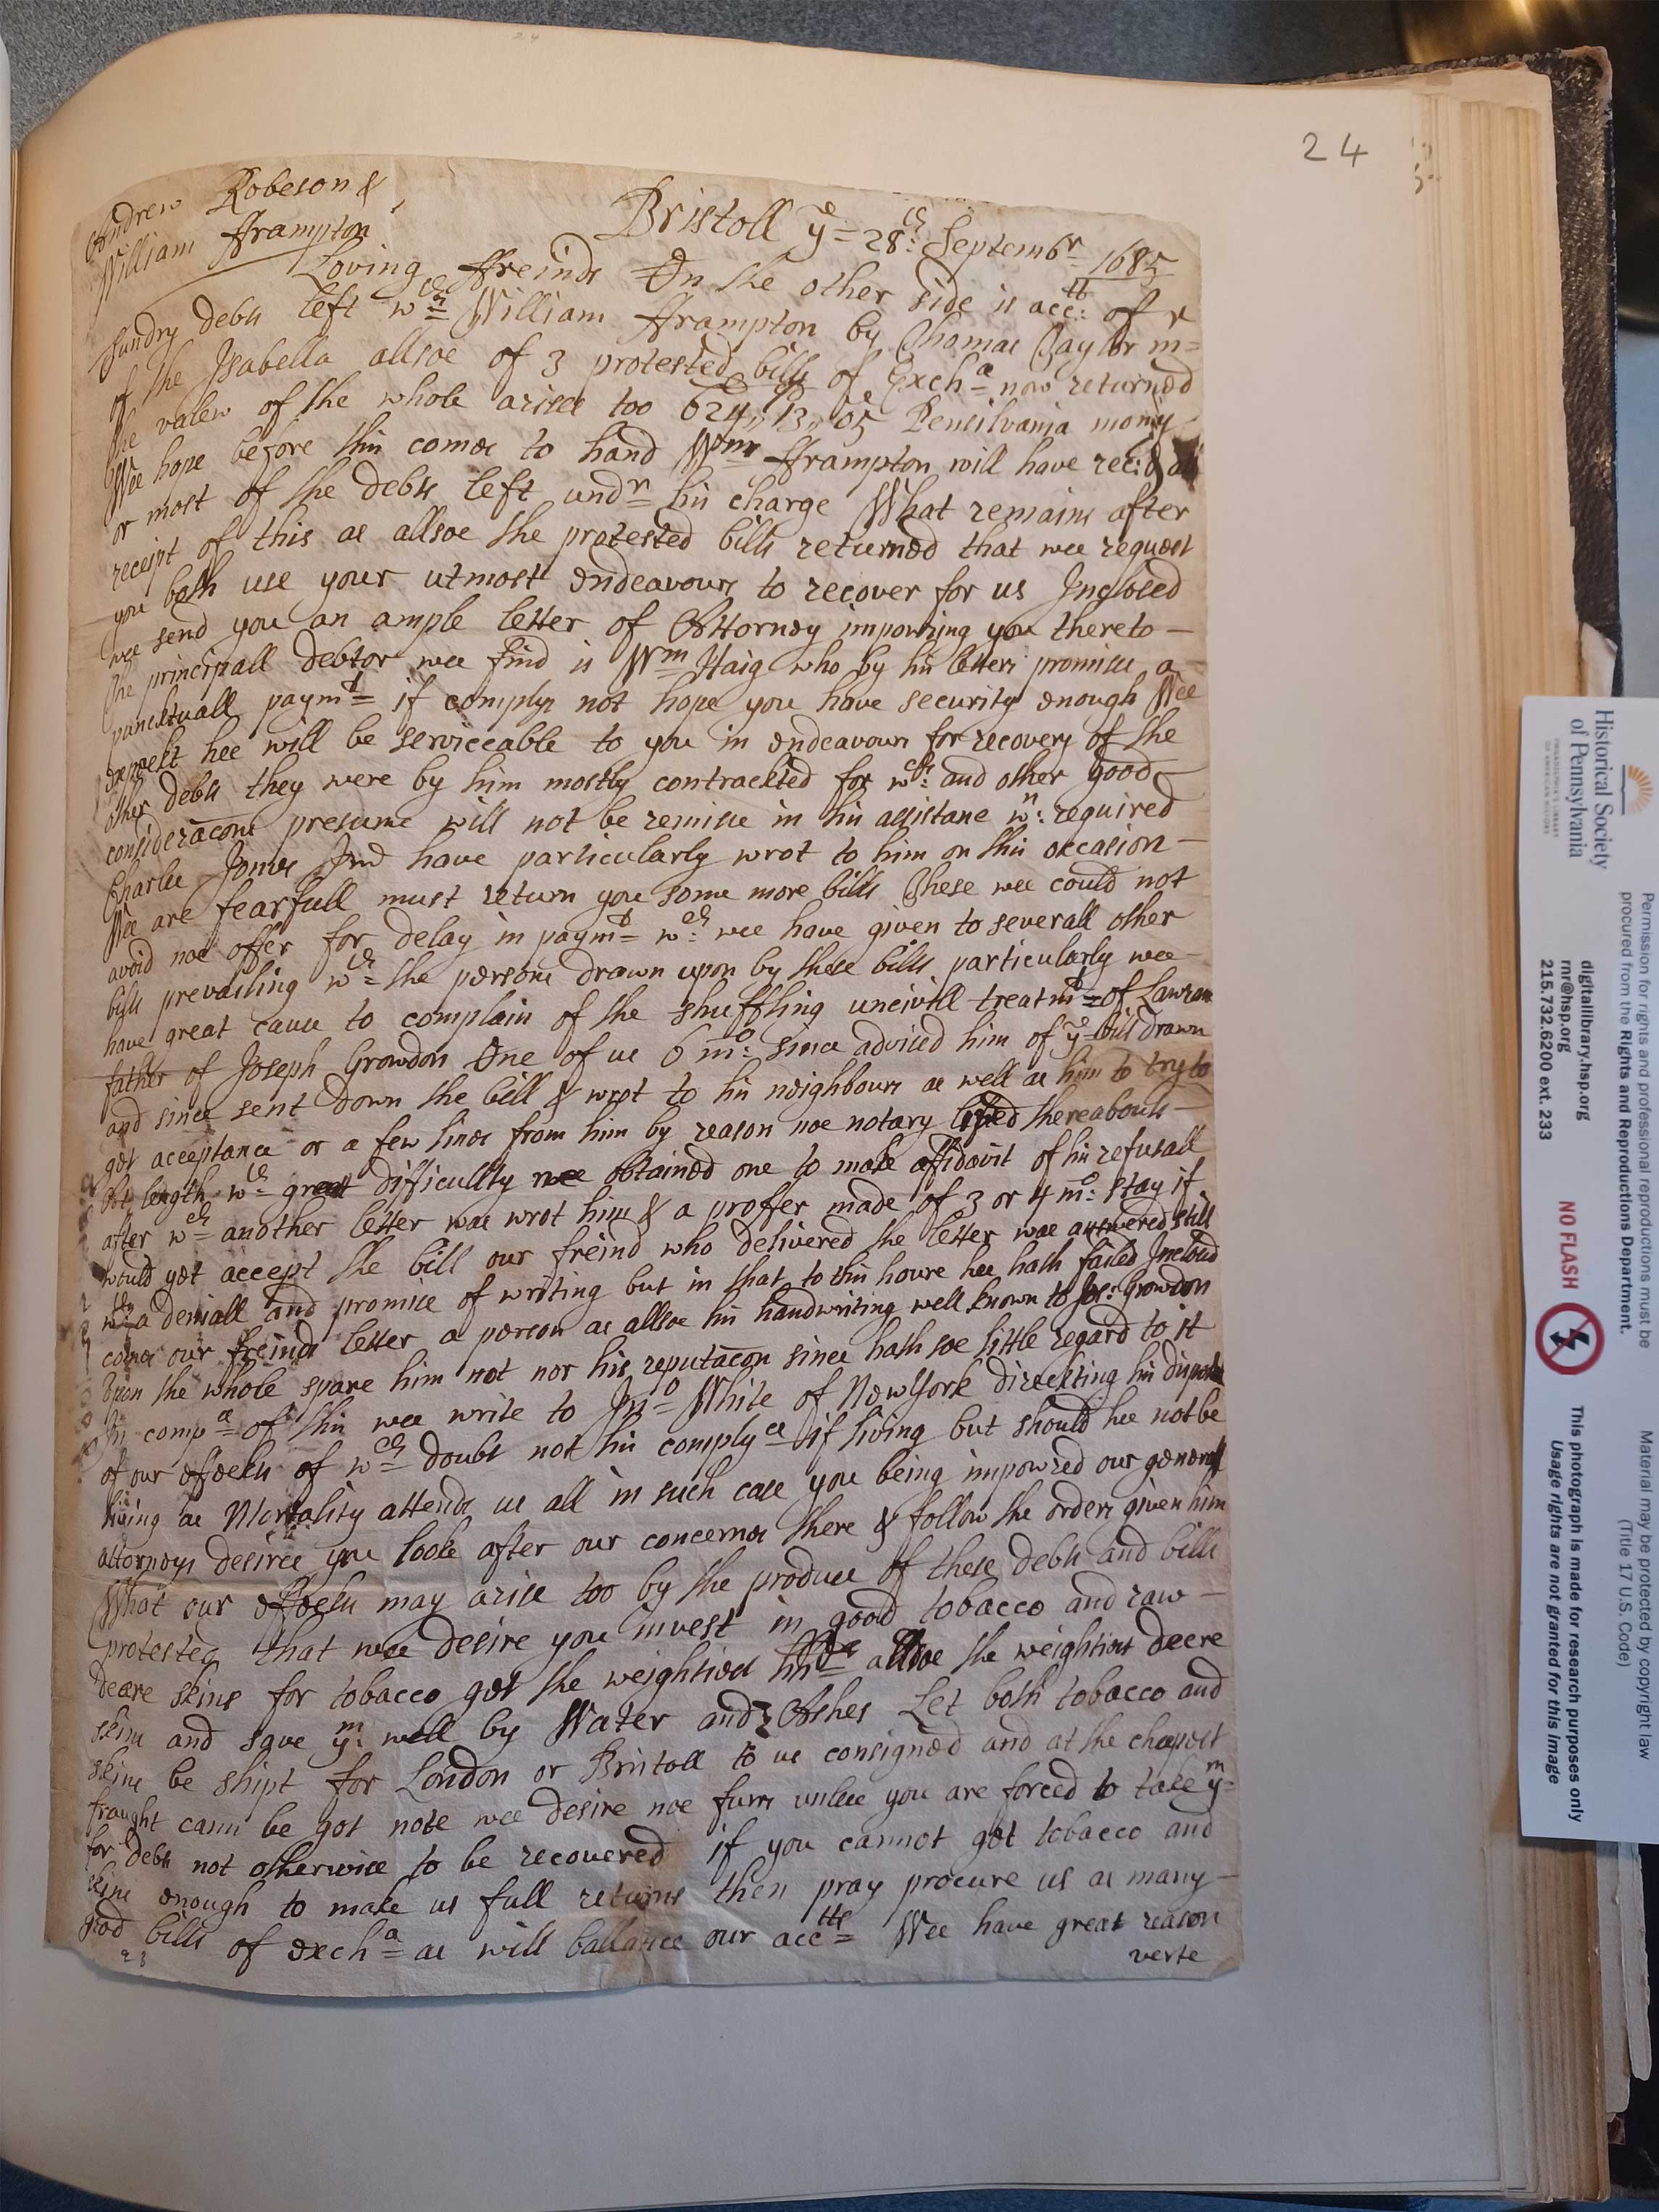 24
Andrew Robeson &
William fframpton
Bristoll ye 28th: Septembr 1685
Loving ffreinds On the other side is acctt: of
Sundry debts left wth William fframpton by Thomas Taylor mr
of the Isabella allsoe of 3 protested bills of Excha now returned
the valew of the whole arises too 624,, 13,, 05 Pensilvania mony
Wee hope before this comes to hand Wm fframpton will have rec:d all
or most of the debts left undr his charge What remains after
receipt of this as allsoe the protested bills returned that wee request
you both use your utmost endeavours to recover for us Inclosed
wee send you an ample letter of Attorney impowring you thereto —
The principall debtor wee find is Wm Haig who by his letters promises a
puncktuall paymt if complys not hope you have security enough Wee
expeckt hee will be serviceable to you in endeavours for recovery of the
other debts they were by him mostly contrackted for wch: and other good
consideracons presume will not be remisse in his assistane wn: required
Charles Jones Junr have particularly wrot to him on this occasion —
Wee are fearfull must return you some more bills These wee could not
avoid noe offer for delay in paymt wch: wee have given to severall other
bills prevailing wth the persons drawn upon by these bills particularly wee
have great cause to complain of the shuffling uncivill treatmt of Lawran
father of Joseph Growdon One of us 6 mo: since adviced him of ye bill drawn
and since sent down the bill & wrot to his neighbours as well as him to try to
get acceptance or a few lines from him by reason noe notary lived thereabouts —
At length wth great difficullty wee obtained one to make affidavit of his refusall
after wch another letter was wrot him & a proffer made of 3 or 4 mo: stay if
would yet accept the bill our freind who delivered the letter was answered still
wth a deniall and promise of writing but in that to this houre hee hath failed Inclosd
comes our freinds letter a person as allsoe his handwriting well known to Jos: Growdon
Upon the whole spare him not nor his reputacon since hath soe little regard to it
In compa of this wee write to Jno White of NewYork direckting his dispose
of our effeckts of wch doubt not his complyce if living but should hee not be
living as Mortality attends us all in such case you being impowred our generall
attorneys desires you looke after our concernes there & follow the orders given him
What our effeckts may arise too by the produce of these debts and bills
protested that wee desire you invest in good tobacco and raw —
deere skins for tobacco get the weightiest hhds allsoe the weightiest deere
skins and save ym: well by Water and Ashes Let both tobacco and
skins be shipt for London or Bristoll to us consigned and at the chepest
fraught cann be got note wee desire noe furrs unless you are forced to take ym
for debts not otherwise to be recovered if you cannot get tobacco and
skins enough to make us full returns then pray procure us as many —
good bills of excha as will ballance our acctts Wee have great reason
verte
28
Historical Society
of Pennsylvania
digitallibrary.hsp.org
rnr@hsp.org
215.732.6200 ext. 233
Permission for rights and professional reproductions must be
procured from the Rights and Reproductions Department.
NO FLASH
Material may be protected by copyright law
(Title 17 U.S. Code)
This photograph is made for research purposes only
Usage rights are not granted for this image